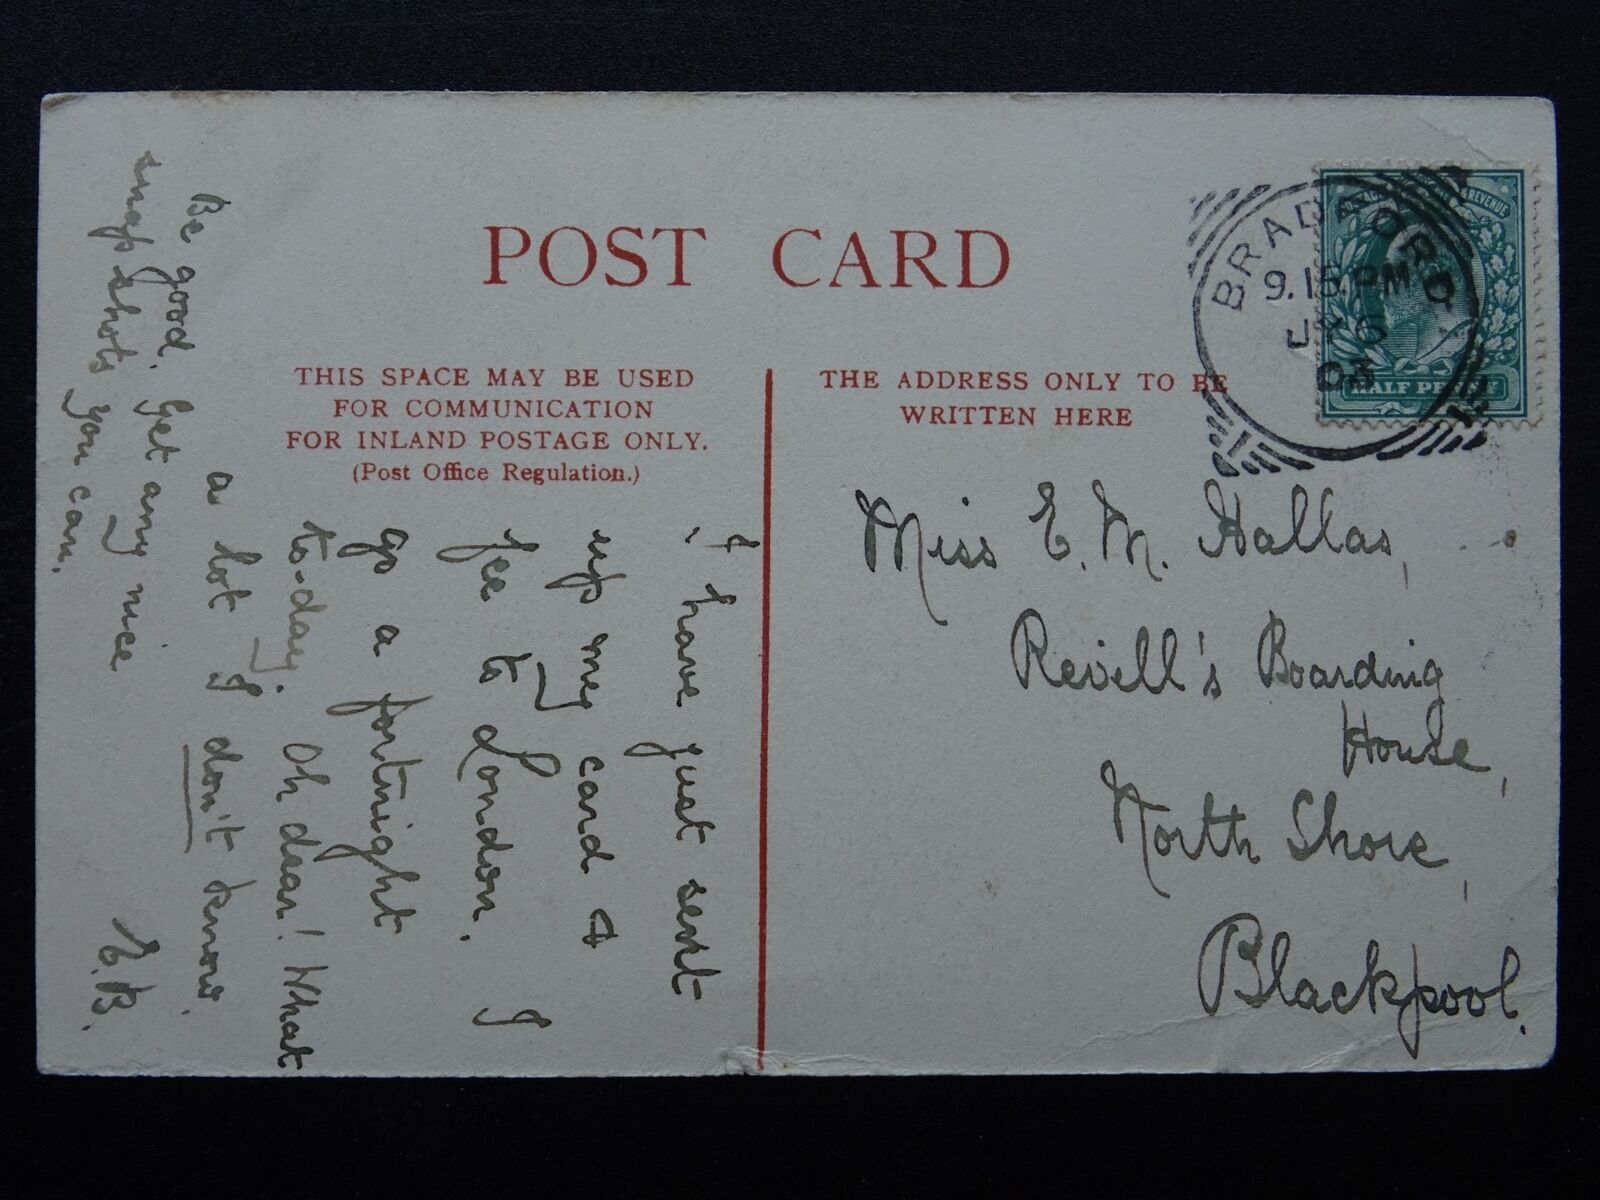 POST CARD
THIS SPACE MAY BE USED
FOR COMMUNICATION
FOR INLAND POSTAGE ONLY.
(Post Office Regulation.)
THE ADDRESS ONLY TO BE
WRITTEN HERE
BRADFORD
9.15.PM
JY 6
& REVENUE
HALF PENNY
Miss E. M. Hallas,
Revell's Boarding
House,
North Shore,
Blackpool.
I have just sent
up my card &
fee to London. I
go a fortnight
to-day. Oh dear! What
a lot I don't know.
Be good. Get any nice
snap shots you can.
E.B.